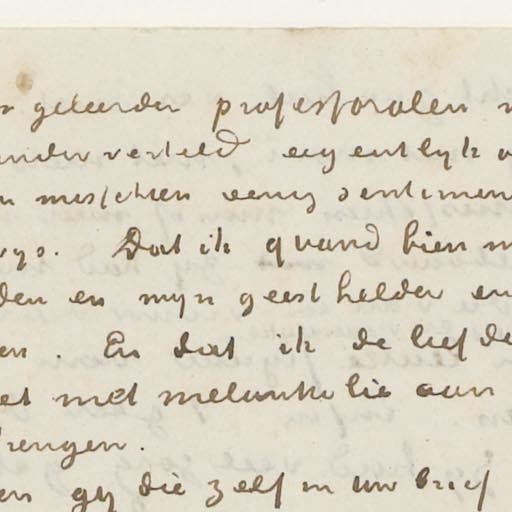 geleerden professoralen
onderverteld eigentlyk
misschien eenig sentimen
wys. Dat ik quand bien m
den en myn geest helder en
en. En dat ik de liefde
et met melankolie aan
rengen.
en gy die zelf in uw brief